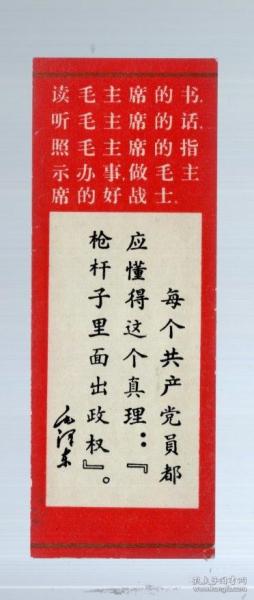 读毛主席的书,
听毛主席的话,
照毛主席的指
示办事,做毛主
席的好战士。
每个共产党员都
应懂得这个真理:『
枪杆子里面出政权』。
毛泽东